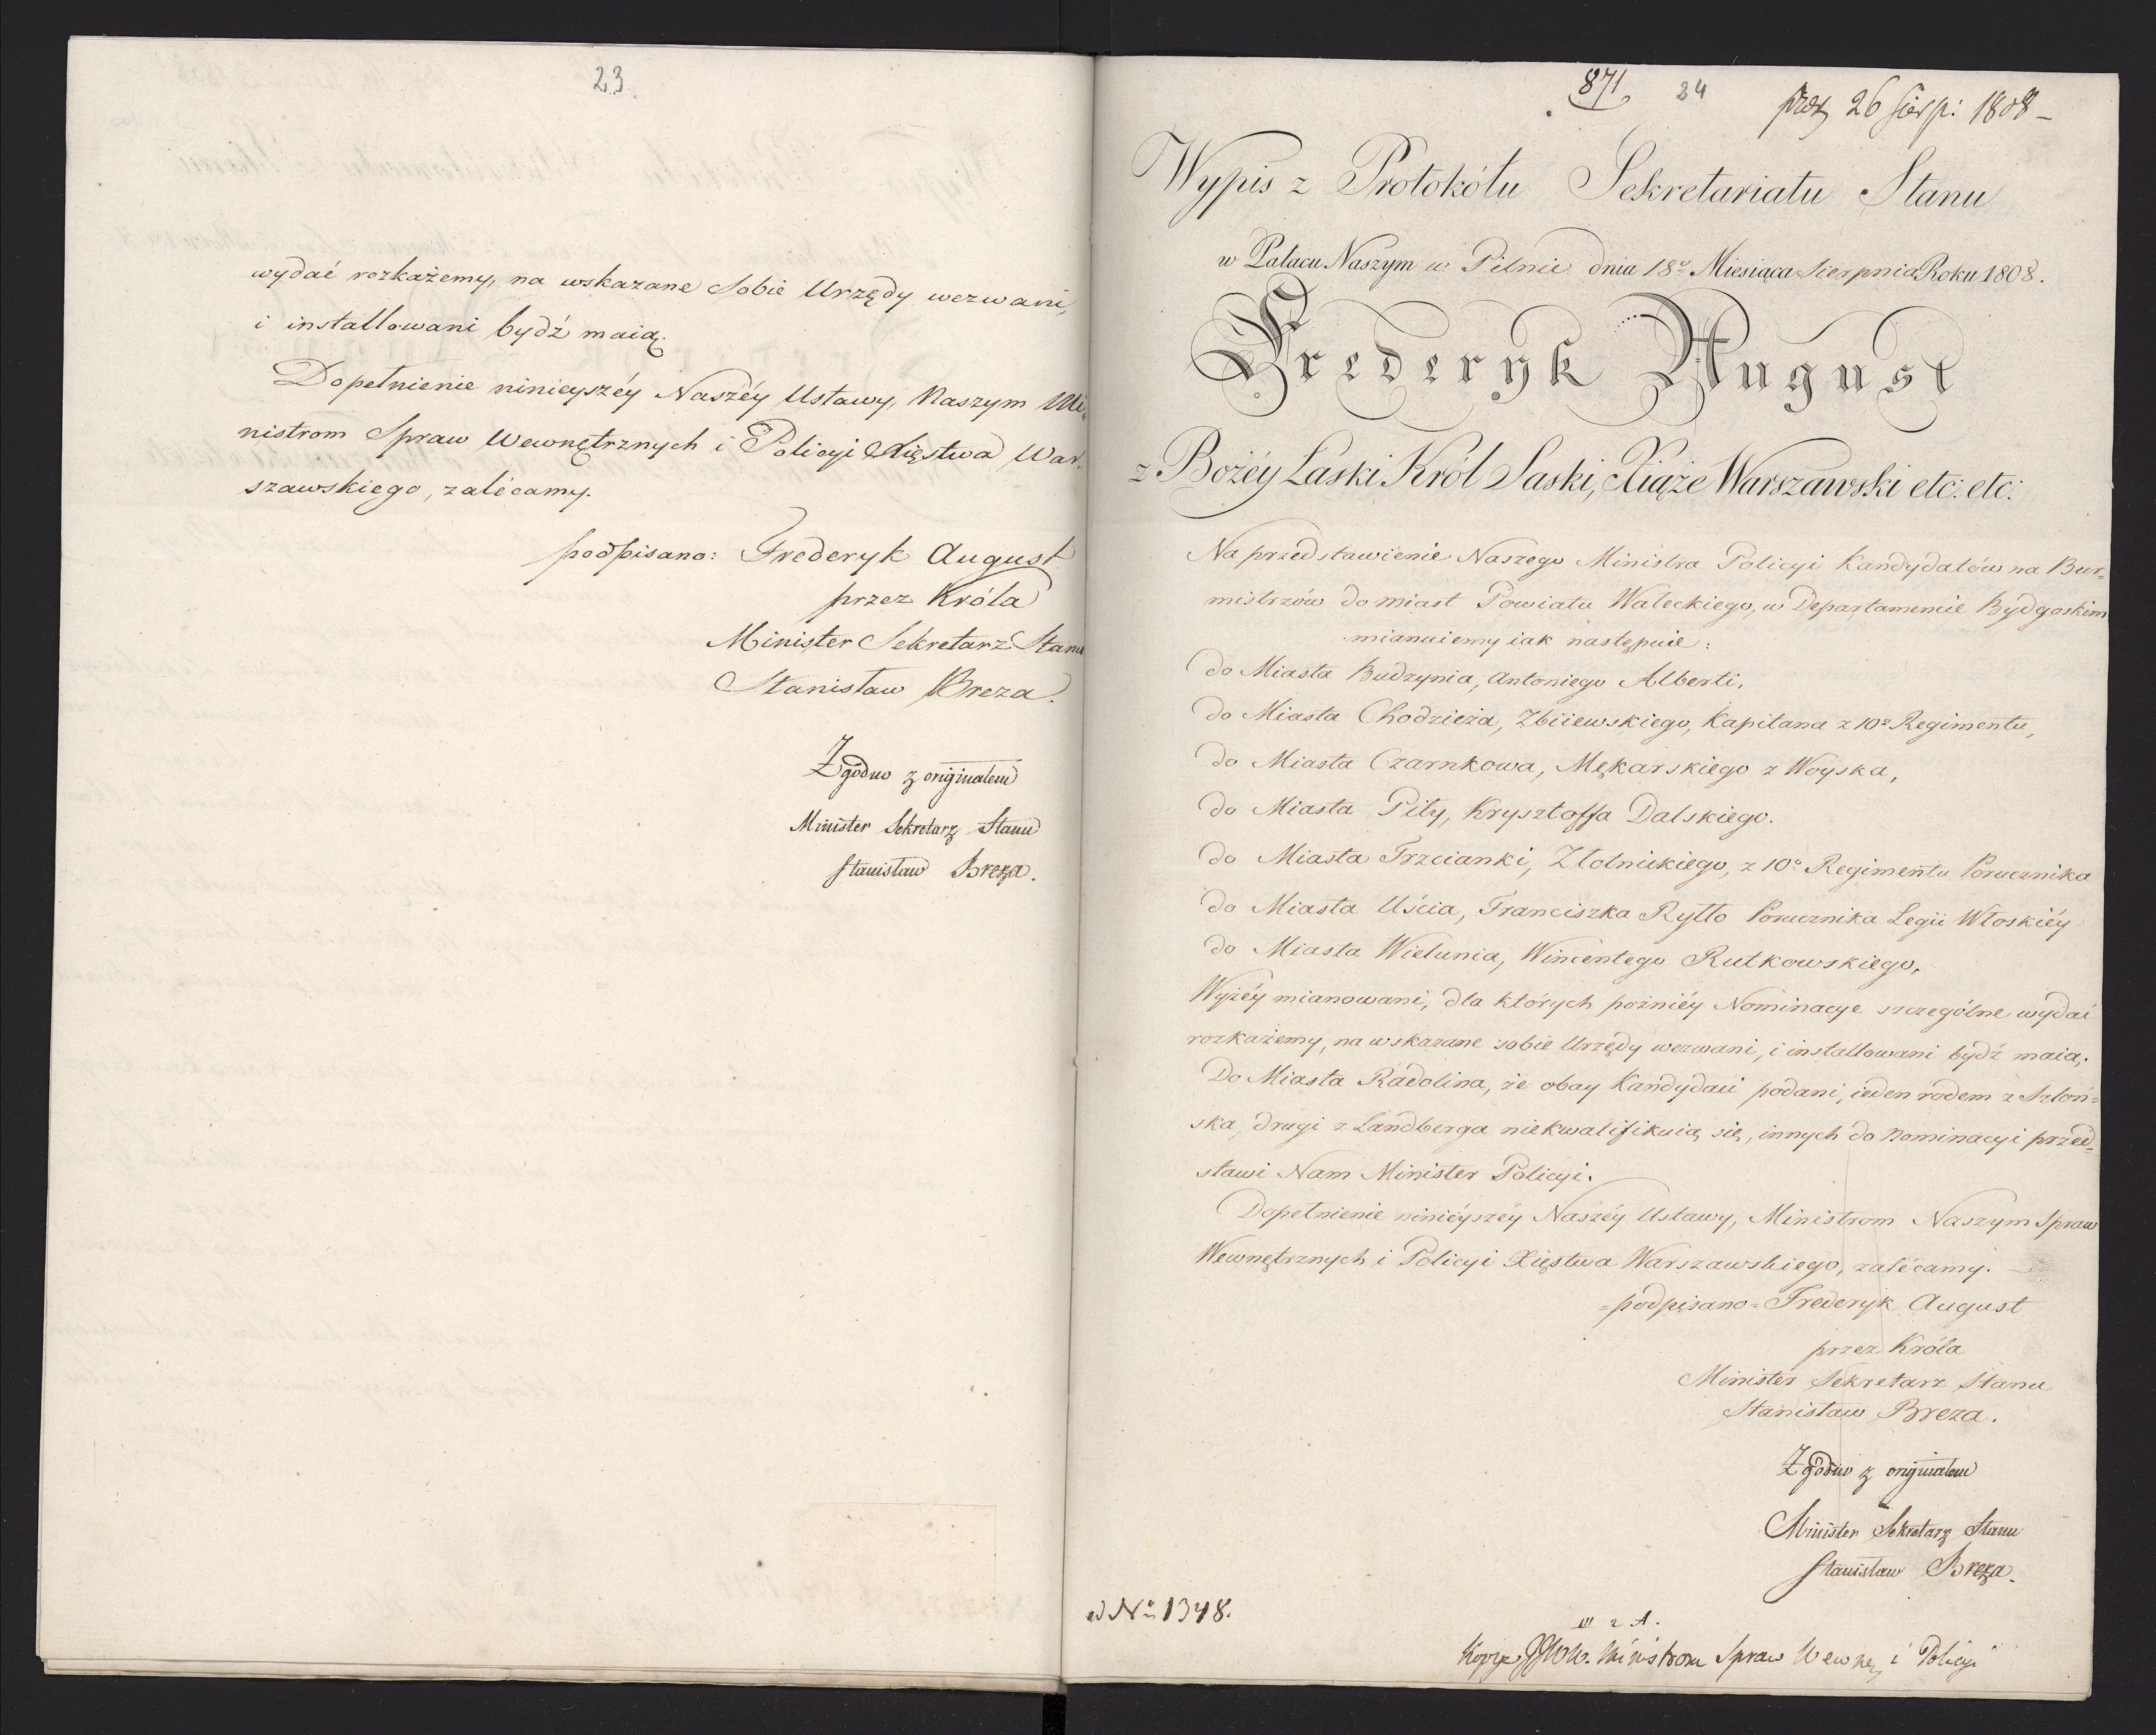 23
wydać rozkażemy, na wskazane Sobie Urzędy wezwani,
i installowani bydź maią.
Dopełnienie ninieyszéy Naszéy Ustawy, Naszym Mi„
nistrom Spraw Wewnętrznych i Policyi Xięstwa War„
szawskiego, zalécamy.
podpisano: Frederyk August
przez Króla
Minister Sekretarz Stanu
Stanisław Breza.
Zgodno z originałem
Minister Sekretarz Stanu
Stanisław Breza.
871 24 26 Sierp: 1808 –
Wypis z Protokółu Sekretariatu Stanu
w Pałacu Naszym w Pilnic dnia 18º Miesiąca Sierpnia Roku 1808.
Frederyk August
z Bożéy Łaski Król Saski, Xiąże Warszawski etc: etc:
Na przedstawienie Naszego Ministra Policyi Kandydatów na Bur=
mistrzów do miast Powiatu Wałeckiego, w Departamencie Bydgoskim
mianuiemy iak następuie:
do Miasta Budzynia, Antoniego Alberti,
do Miasta Chodzieża, Zbiiewskiego, Kapitana z 10º Regimentu,
do Miasta Czarnkowa, Mękarskiego z Woyska,
do Miasta Piły, Krysztoffa Dalskiego.
do Miasta Trzcianki, Złotnickiego, z 10º Regimentu Porucznika
do Miasta Uścia, Franciszka Ryłło Porucznika Legii Włoskiéy
do Miasta Wielunia, Wincentego Rutkowskiego,
Wyżéy mianowani, dla których pożniéy Nominacye szczególne wydać
rozkażemy, na wskazane sobie Urzędy wezwani, i installowani bydź maią.
Do Miasta Radolina, że obay Kandydaci podani, ieden rodem z Szlon=
ska, drugi z Landberga niekwalifikuią się, innych do Nominacyi przed=
stawi Nam Minister Policyi.
Dopełnienie niniéyszéy Naszéy Ustawy, Ministrom Naszym Spraw
Wewnętrznych i Policyi Xięstwa Warszawskiego, zalécamy.
=podpisano= Frederyk August
przez Króla
Minister Sekretarz Stanu
Stanisław Breza.
Zgodno z originałem
Minister Sekretarz Stanu
Stanisław Breza.
Nº 1348.
Ministrom Spraw Wewnę i Policyi